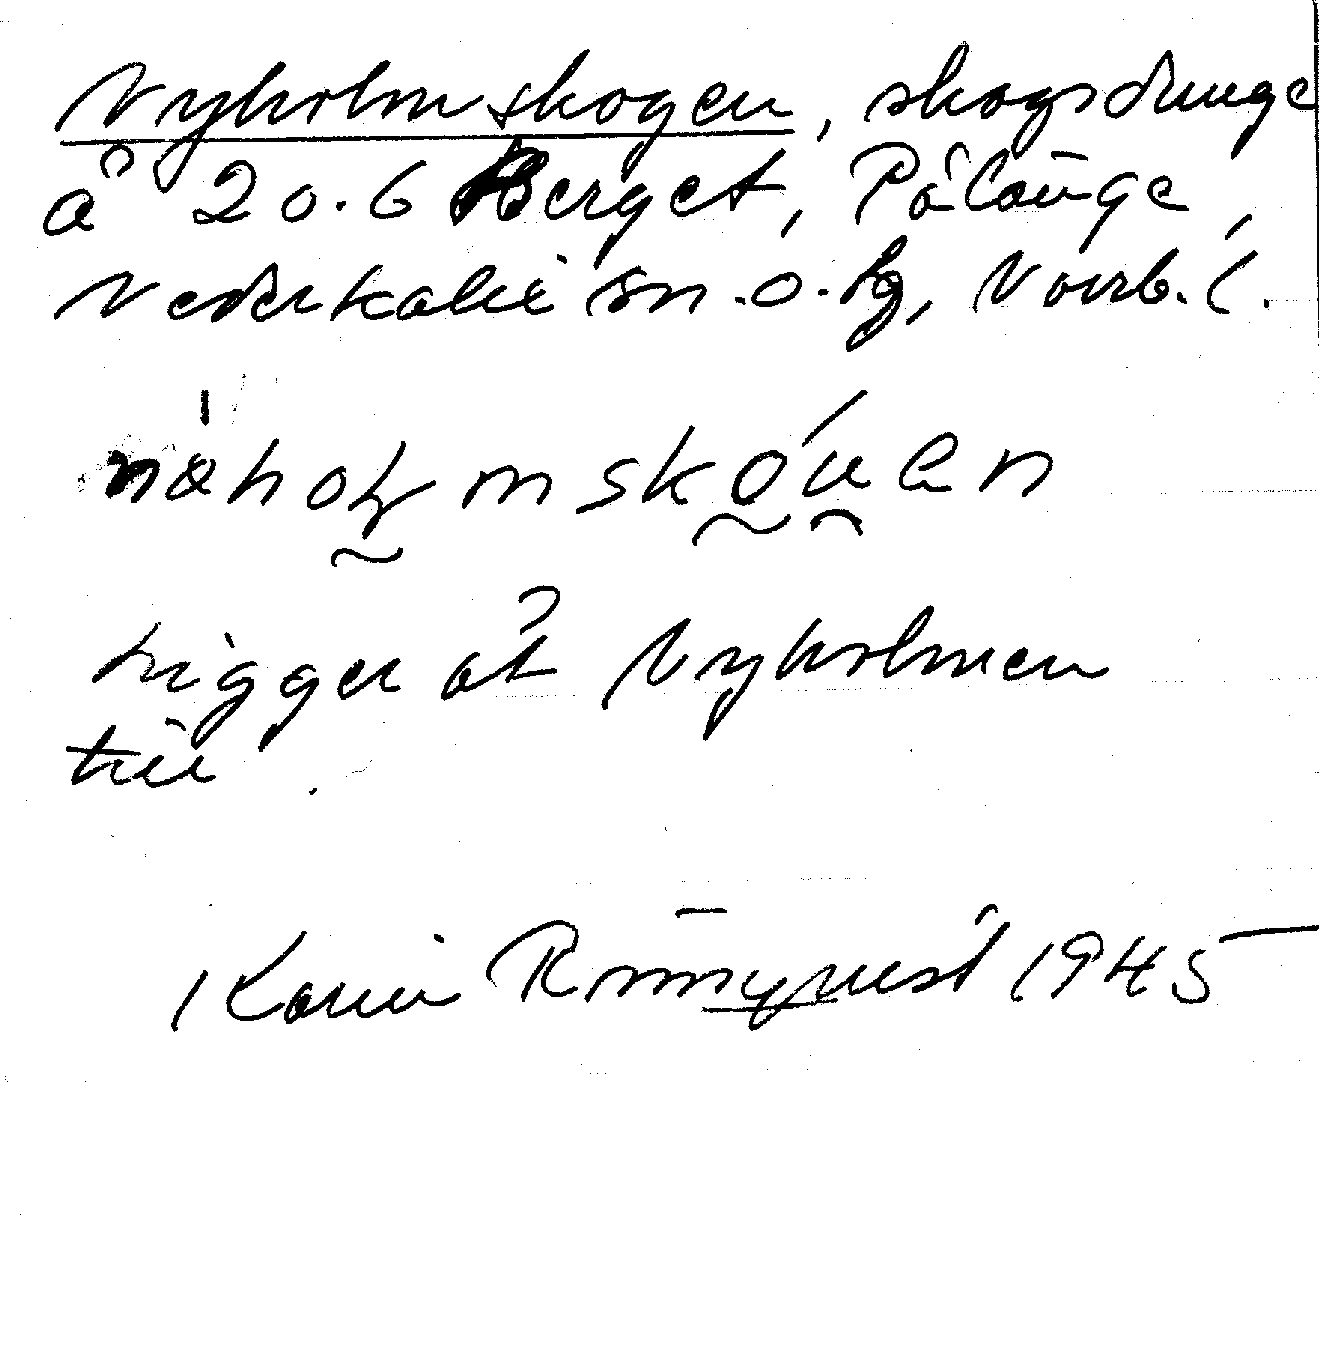 Nyholmskogen, skogsdunge
å 20.6 Berget, Pålänge,
Nederkalix sn. o. hg, Norrb. l.
ligger åt Nyholmen
till.
Karin Rönnqvist 1945